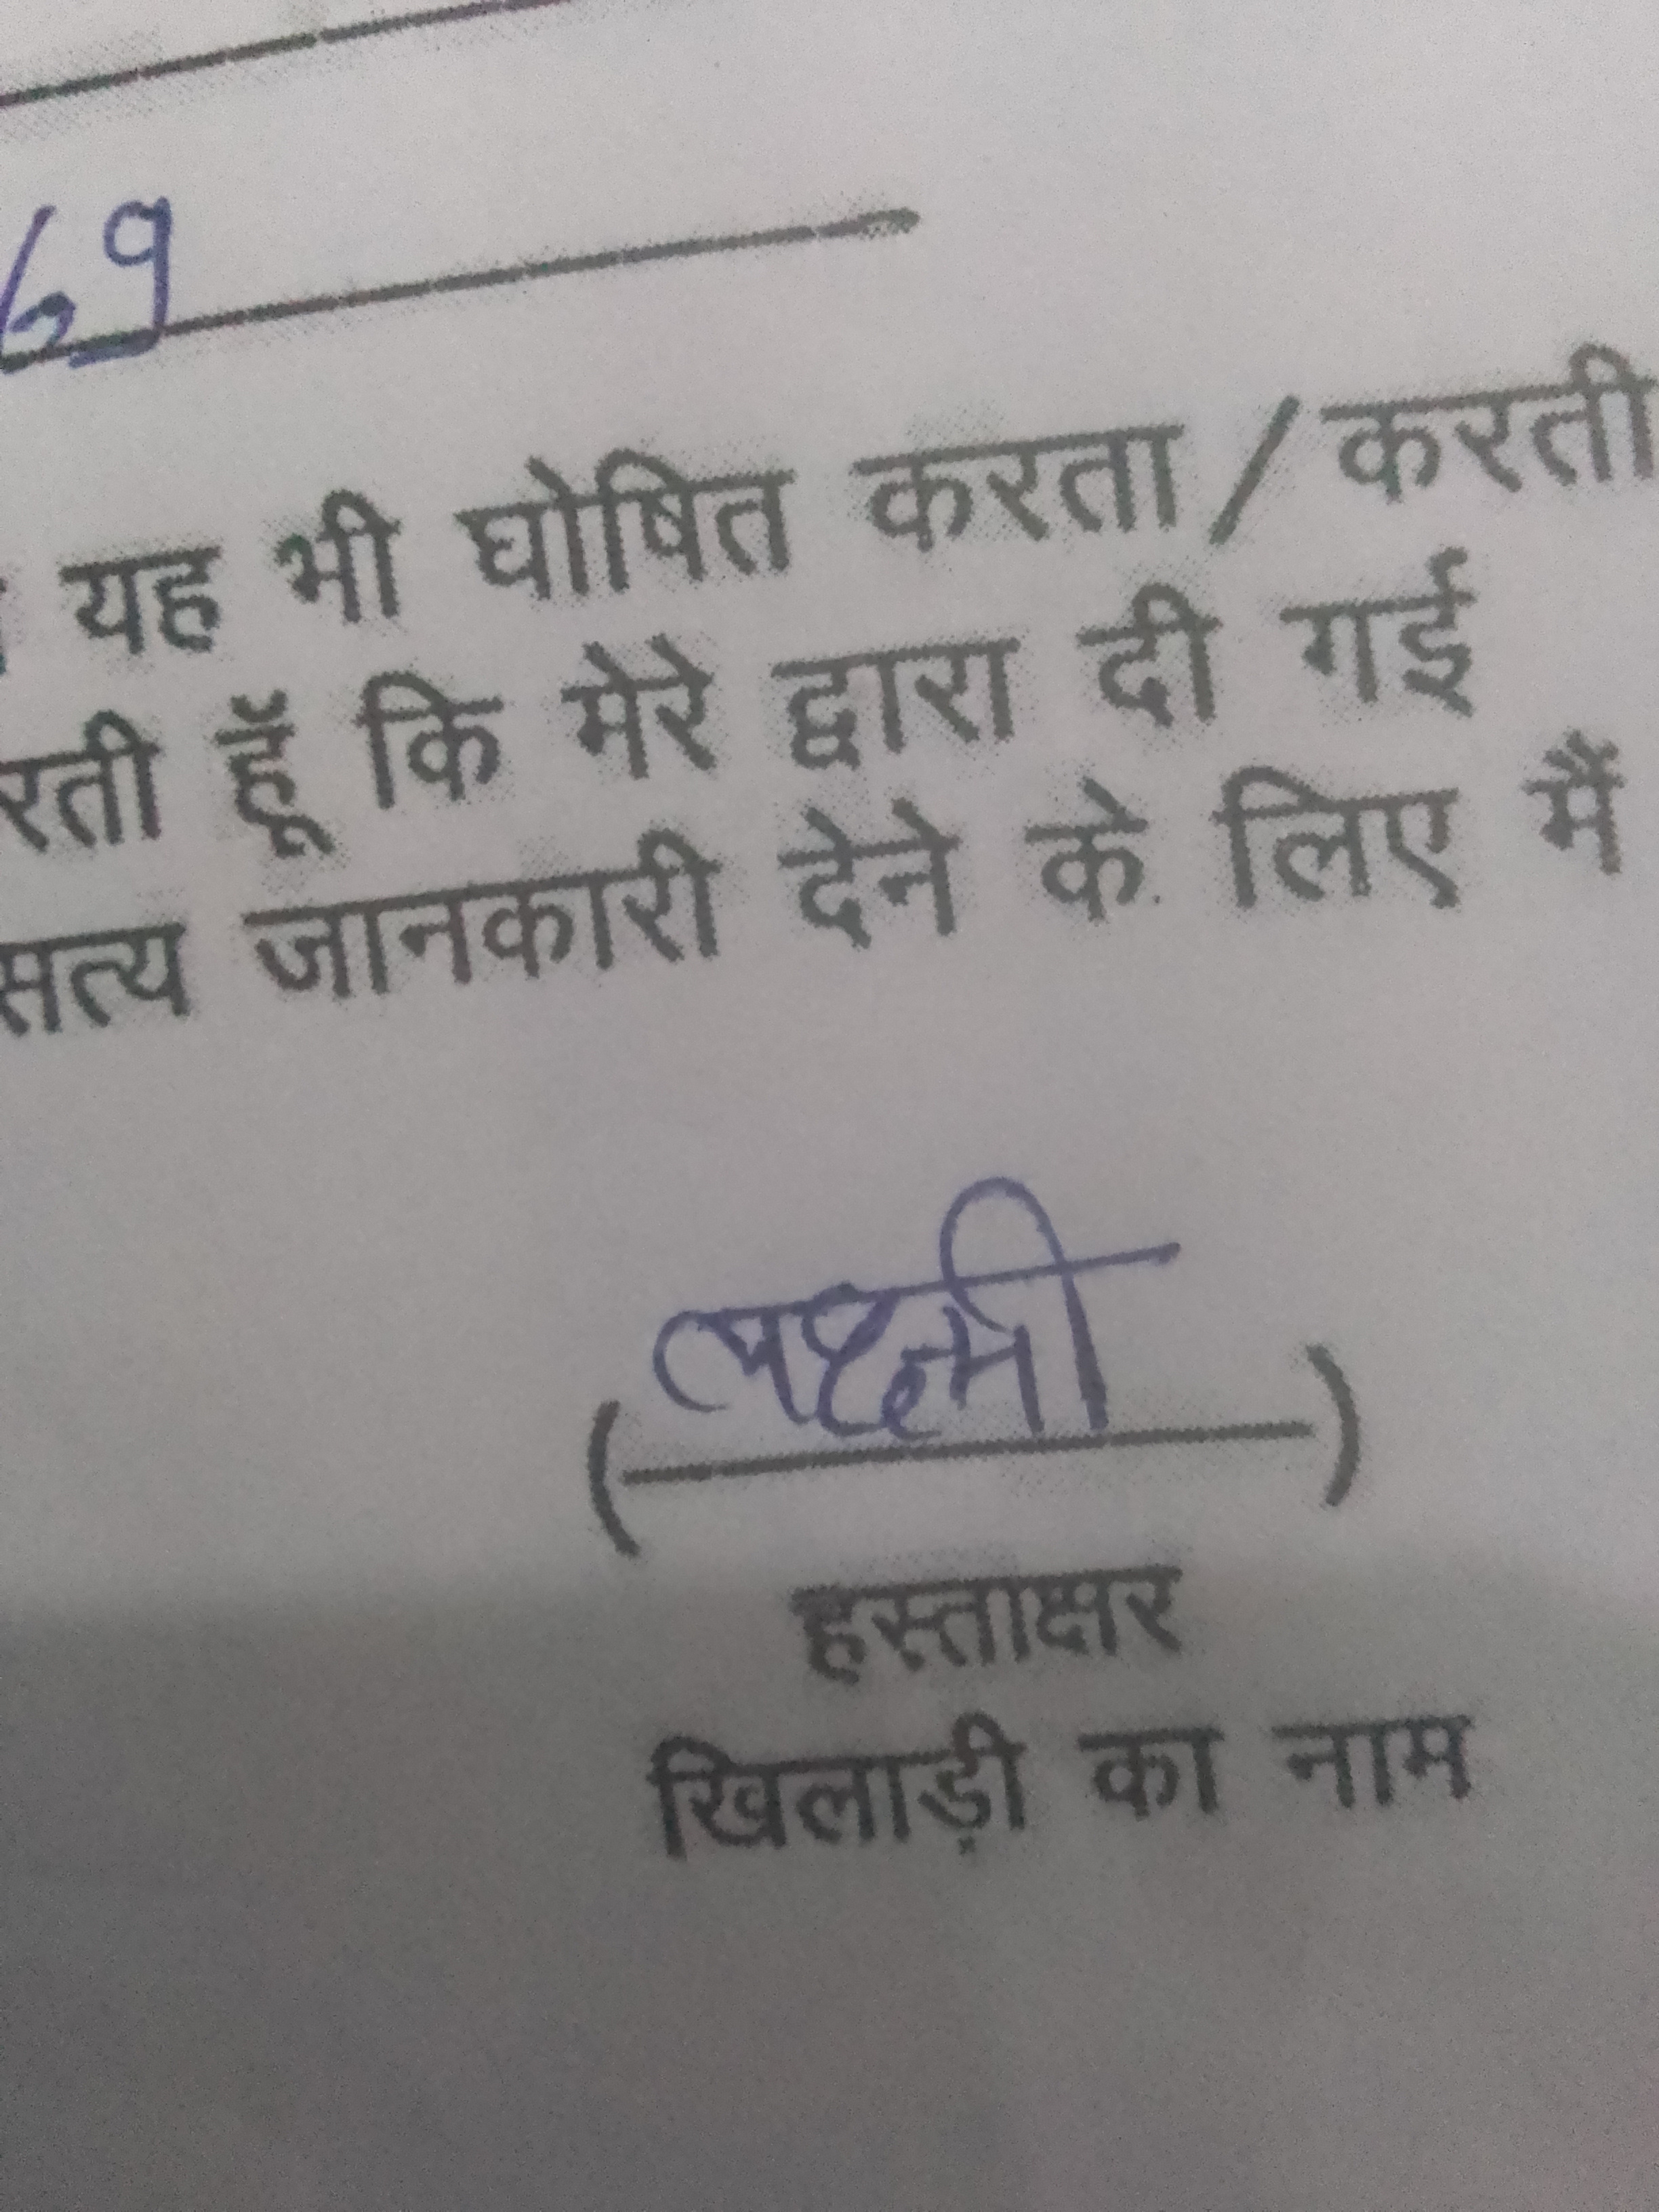 69
यह भी घोषित करता/करती
रती हूँ कि मेरे द्वारा दी गई
सत्य जानकारी देने के लिए मैं
(लक्ष्मी)
हस्ताक्षर
खिलाड़ी का नाम